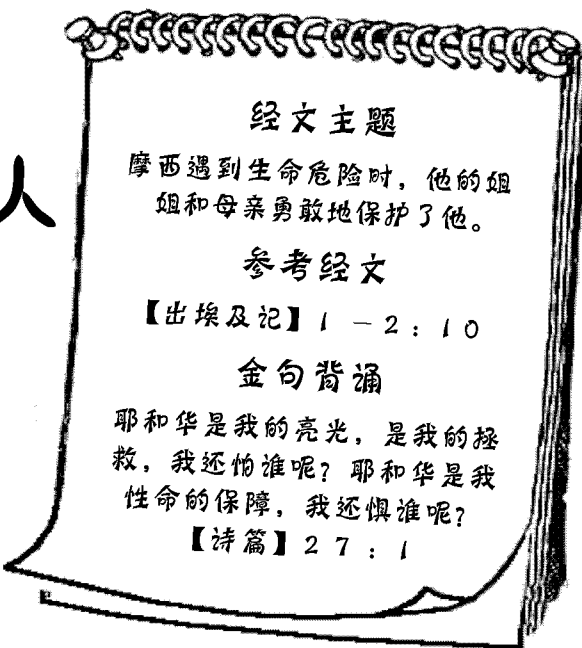 人
经文主题
摩西遇到生命危险时，他的姐
姐和母亲勇敢地保护了他。
参考经文
【出埃及记】1－2：10
金句背诵
耶和华是我的亮光，是我的拯
救，我还怕谁呢？耶和华是我
性命的保障，我还惧谁呢？
【诗篇】27：1